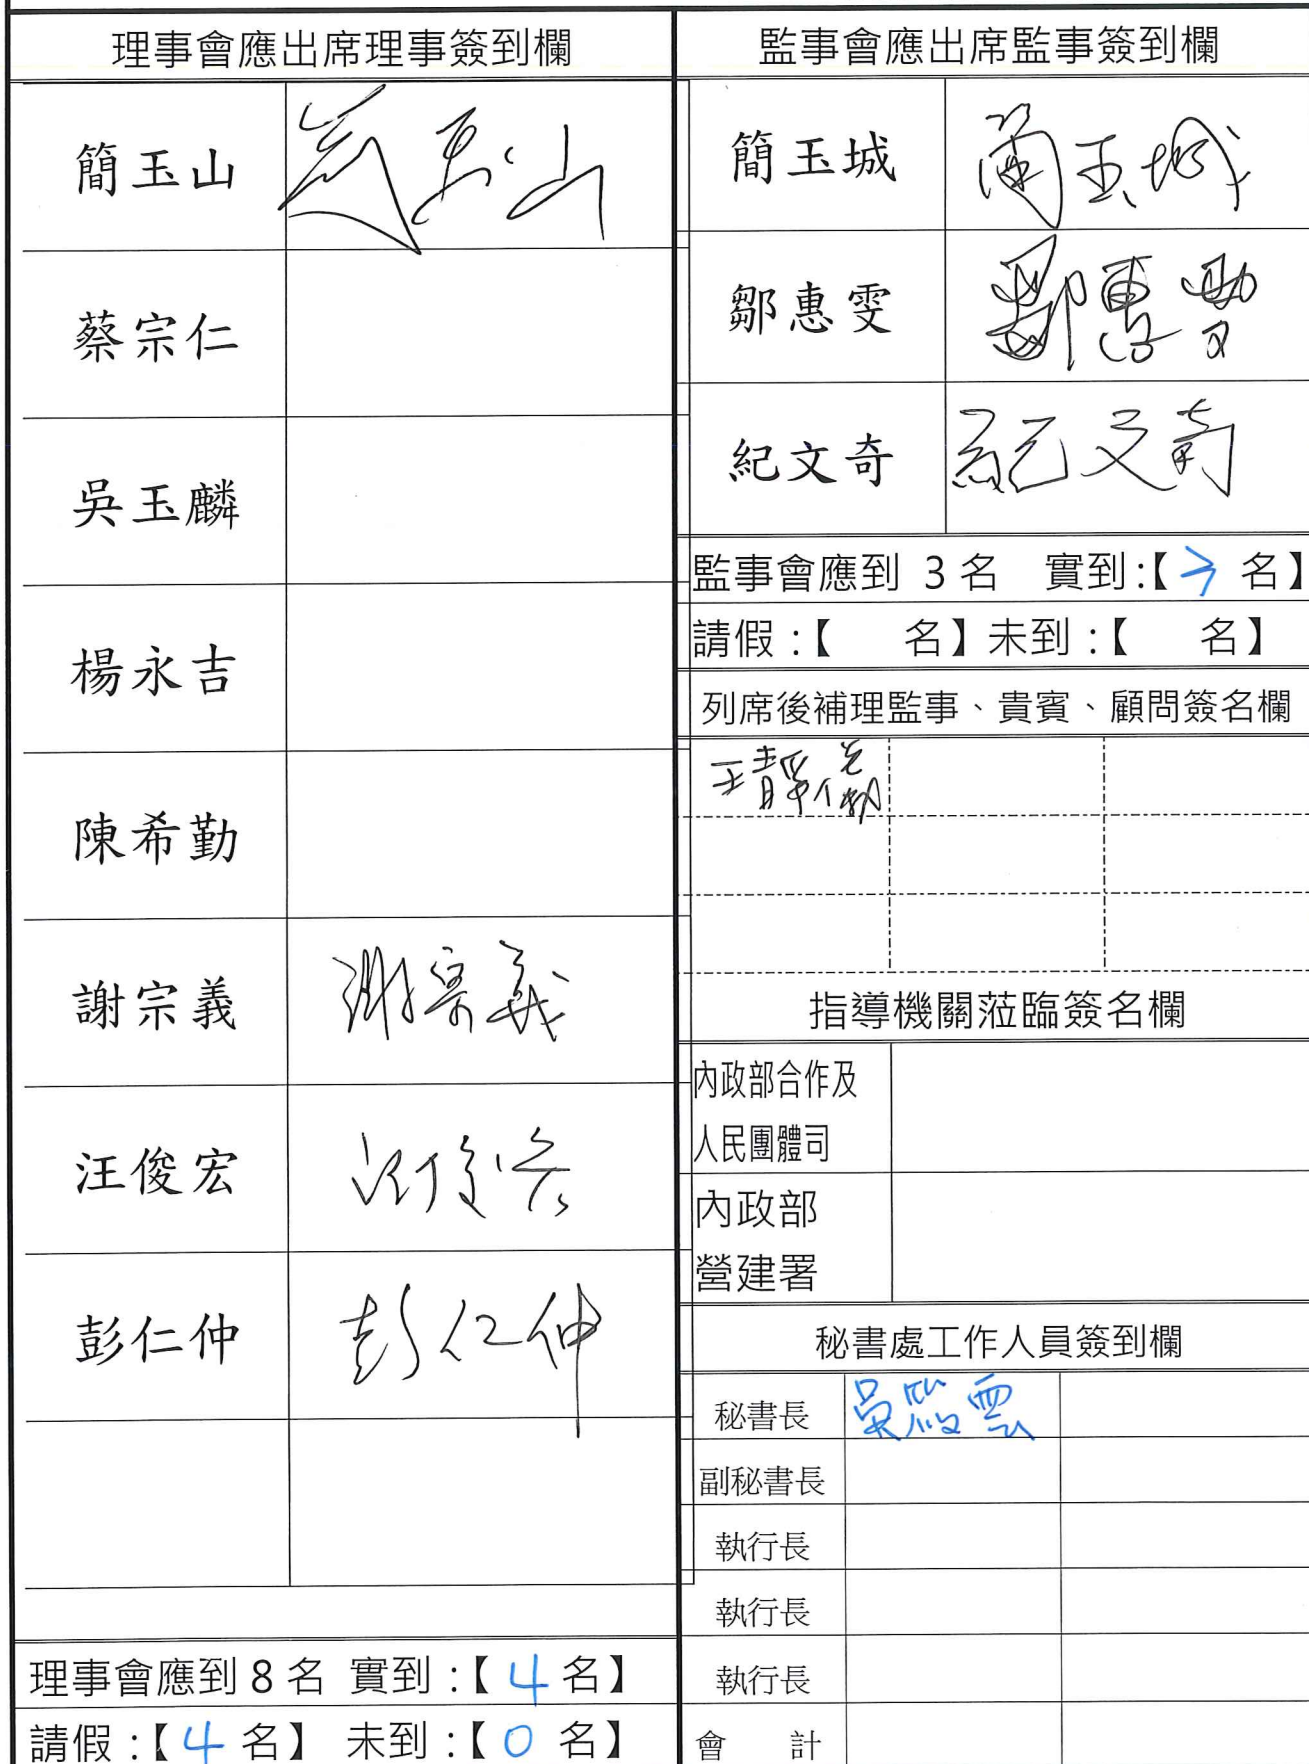 理事會應出席理事簽到欄
簡玉山 簡玉山
蔡宗仁
吳玉麟
楊永吉
陳希勤
謝宗義 謝宗義
汪俊宏 汪俊宏
彭仁仲 彭仁仲
理事會應到 8 名 實到:【4 名】
請假:【4 名】 未到:【0 名】
監事會應出席監事簽到欄
簡玉城 簡玉城
鄒惠雯 鄒惠雯
紀文奇 紀文奇
監事會應到 3 名 實到:【3 名】
請假:【 名】未到:【 名】
列席後補理監事、貴賓、顧問簽名欄
指導機關蒞臨簽名欄
內政部合作及
人民團體司
內政部
營建署
秘書處工作人員簽到欄
秘書長 吳筱雲
副秘書長
執行長
執行長
執行長
會 計